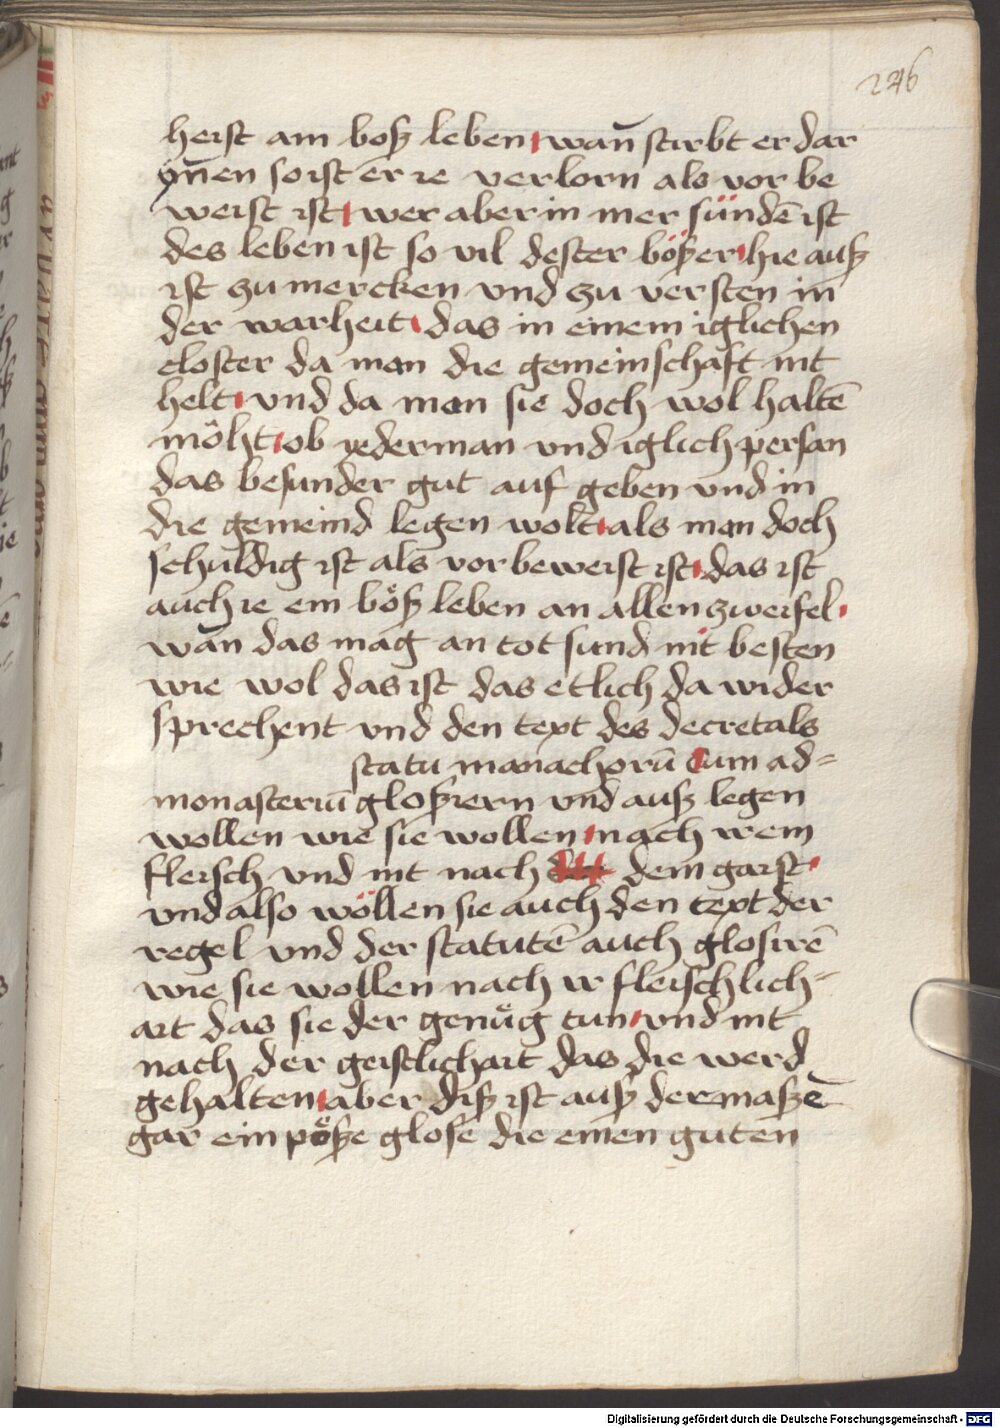 246
heist am boß leben wañ stirbt er dar
ynnen so ist er ie verlorn als vor be
weist ist wer aber in mer sündē ist
des leben ist so vil dester bößer hie auß
ist zu mercken vnd zu versten in
der warheit das in einem iglichen
closter da man die gemeinschaft nit
helt vnd da man sie doch wol haltē
möht ob yederman vnd iglich persan
das besunder gut auf geben vnd in
die gemeind legen wolt als man doch
schuldig ist als vor beweist ist das ist
auch ie ein böß leben an allen zweifel
wan das mag an tot sund nit besten
wie wol das ist das etlich da wider
sprechent vnd den text des decretals
statu manachorū Cum ad-
monasteriū gloßiern vnd auß legen
wollen wie sie wollen nach irem
fleisch vnd nit nach dem garst
vnd also wöllen sie auch den text der
regel vnd der statutē auch glosirē
wie sie wollen nach ir fleischlich-
art das sie der genüg tun vnd nit
nach der geistlichait das die werd
gehalten aber diß ist auß dermaßē
gar ein pöße glose die einen guten
Digitalisierung gefördert durch die Deutsche Forschungsgemeinschaft - DFG